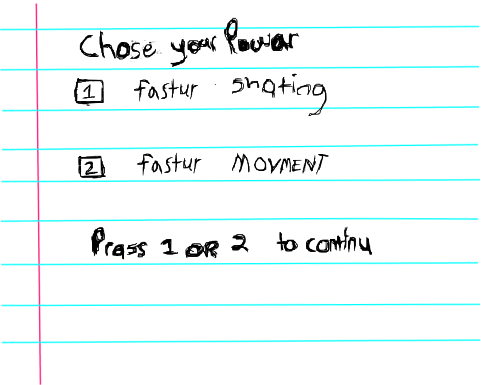 Chose your Powar
1 fastur shating
2 fastur MOVMENT
Prass 1 OR 2 to continu